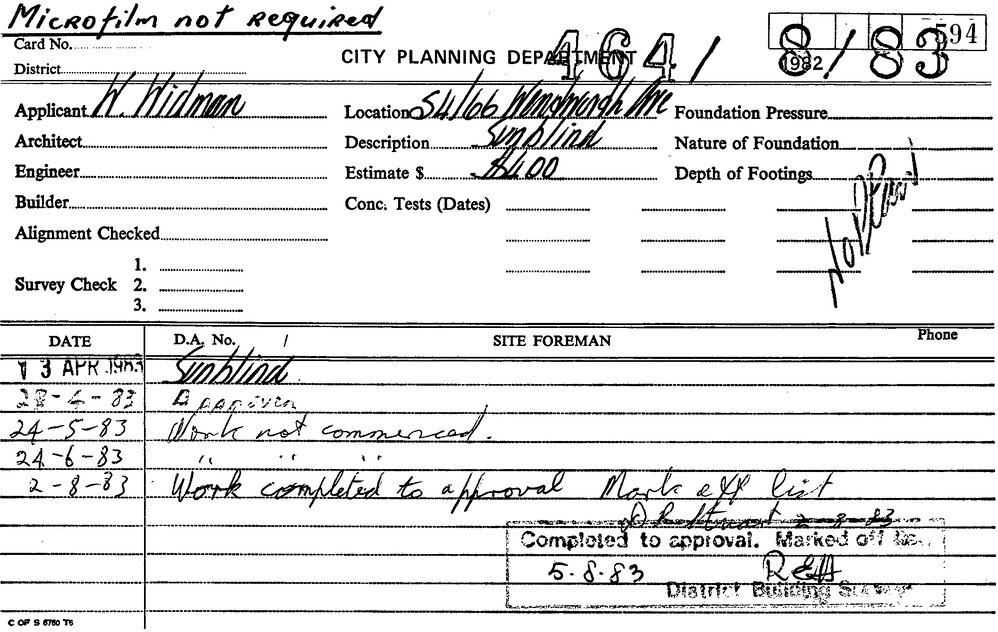 Microfilm not required
Card No.
District
CITY PLANNING DEPARTMENT
464/ 8/83
594
1982
Applicant W. Widman
Location 54/66 Wentworth Ave
Foundation Pressure
Architect
Description Sunblind
Nature of Foundation
Engineer
Estimate $ $400
Depth of Footings
Builder
Conc. Tests (Dates)
No
Alignment Checked
Survey Check
1.
2.
3.
DATE
D.A. No. /
SITE FOREMAN
Phone
13 APR 1983 Sunblind
28-4-83 Approven
24-5-83 Work not commenced.
24-6-83 " " "
2-8-83 Work completed to approval Mark off list
2-8-83
Completed to approval. Marked off
5.8.83
District Building Surveyor
C OF S 6760 T6